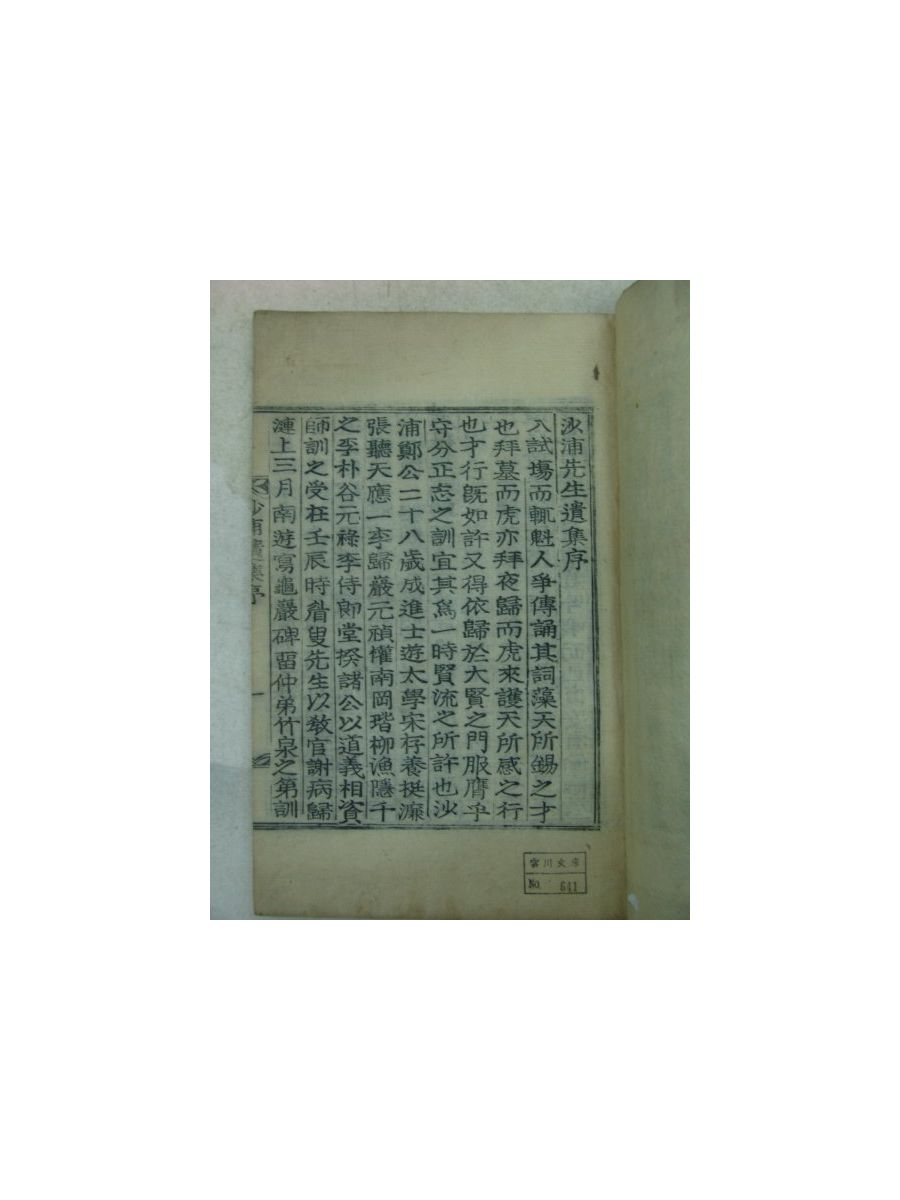 沙浦先生遺集序
入試場而輒魁人爭傳誦其詞藻天所錫之才
也拜墓而虎亦拜夜歸而虎來護天所感之行
也才行旣如許又得依歸於大賢之門服膺乎
守分正志之訓宜其爲一時賢流之所許也沙
浦鄭公二十八歲成進士遊太學宋存養挺濂
張聽天應一李歸巖元禎權南岡瑎柳漁隱千
之李朴谷元祿李侍郎堂揆諸公以道義相資
師訓之受在壬辰時眉叟先生以敎官謝病歸
漣上三月南遊寫龜巖碑留仲弟竹泉之第訓
沙浦遺集序
一
富川文庫
No. 641